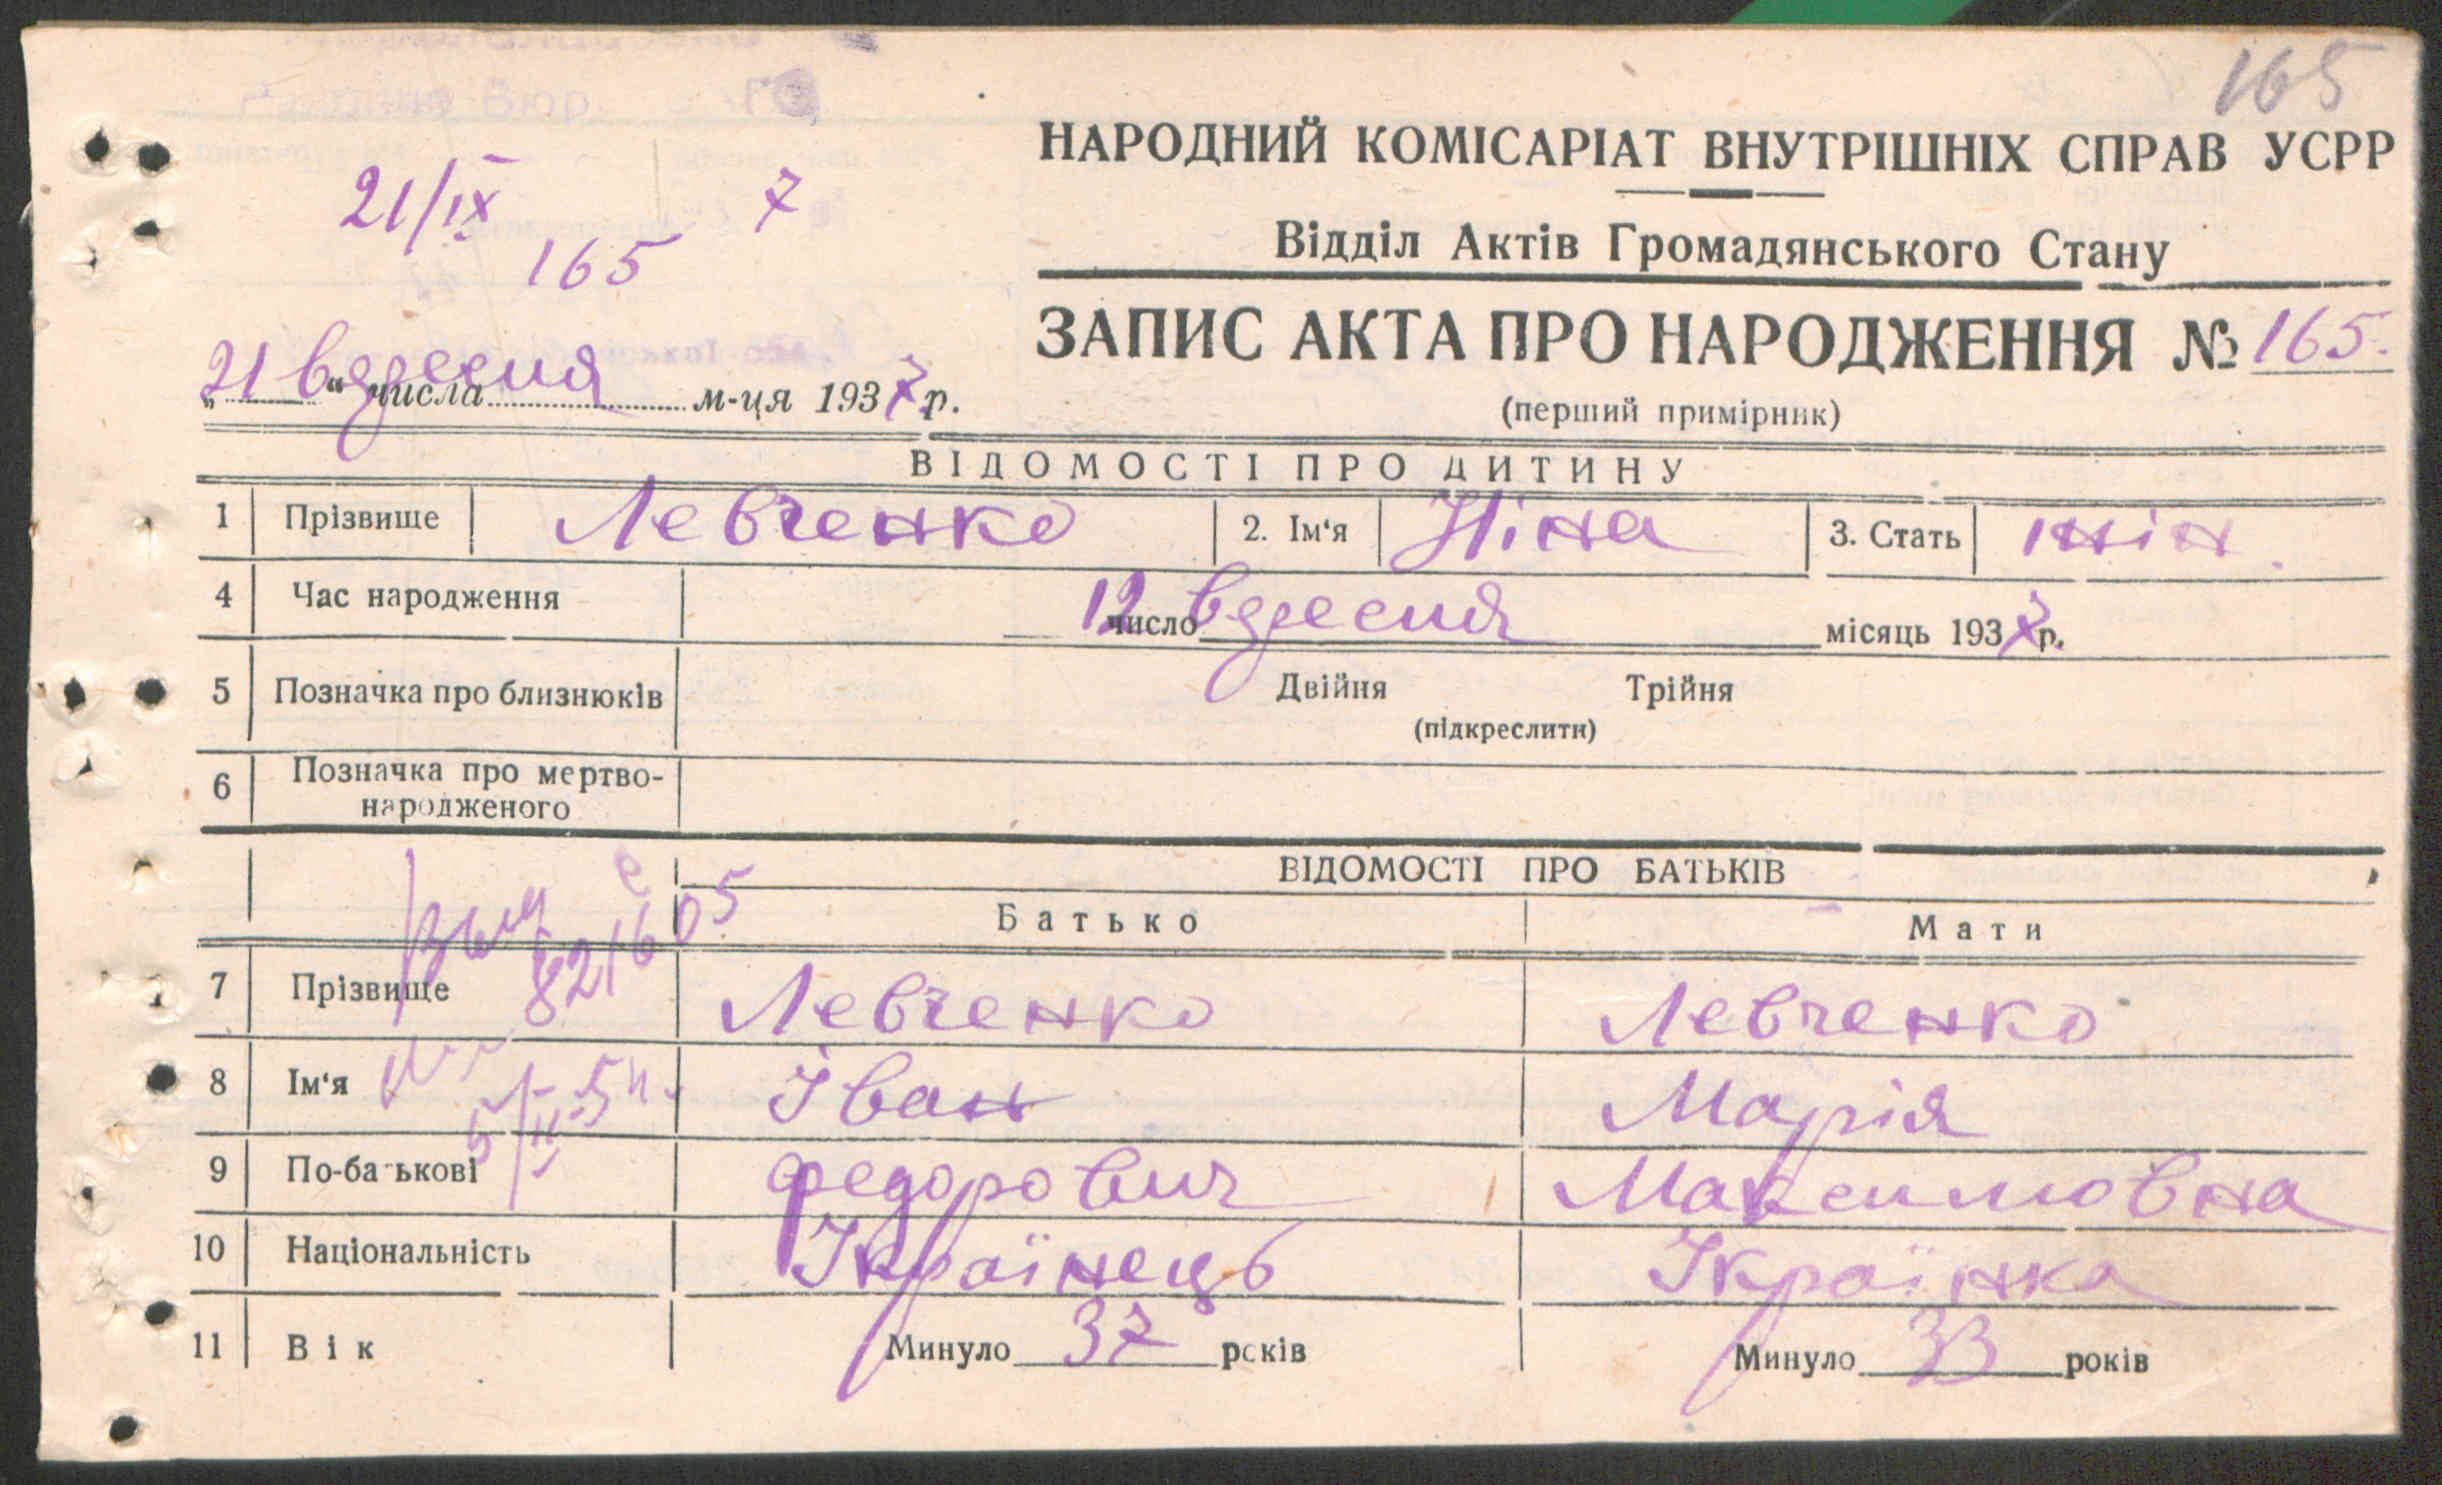 165
НАРОДНИЙ КОМІСАРІАТ ВНУТРІШНІХ СПРАВ УСРР
21/IX 7
165
Відділ Актів Громадянського Стану
ЗАПИС АКТА ПРО НАРОДЖЕННЯ № 165.
„21" вересня числа м-ця 1937 р.
(перший примірник)
ВІДОМОСТІ ПРО ДИТИНУ
1 Прізвище Левченко 2. Ім'я Ніна 3. Стать жін.
4 Час народження 12 число вересня місяць 1937 р.
5 Позначка про близнюків Двійня Трійня
(підкреслити)
6 Позначка про мертво-
народженого
ВІДОМОСТІ ПРО БАТЬКІВ
Батько Мати
821605
7 Прізвище Левченко Левченко
8 Ім'я Іван Марія
9 По-батькові Федорович Максимовна
10 Національність Українець Українка
11 Вік Минуло 37 років Минуло 33 років